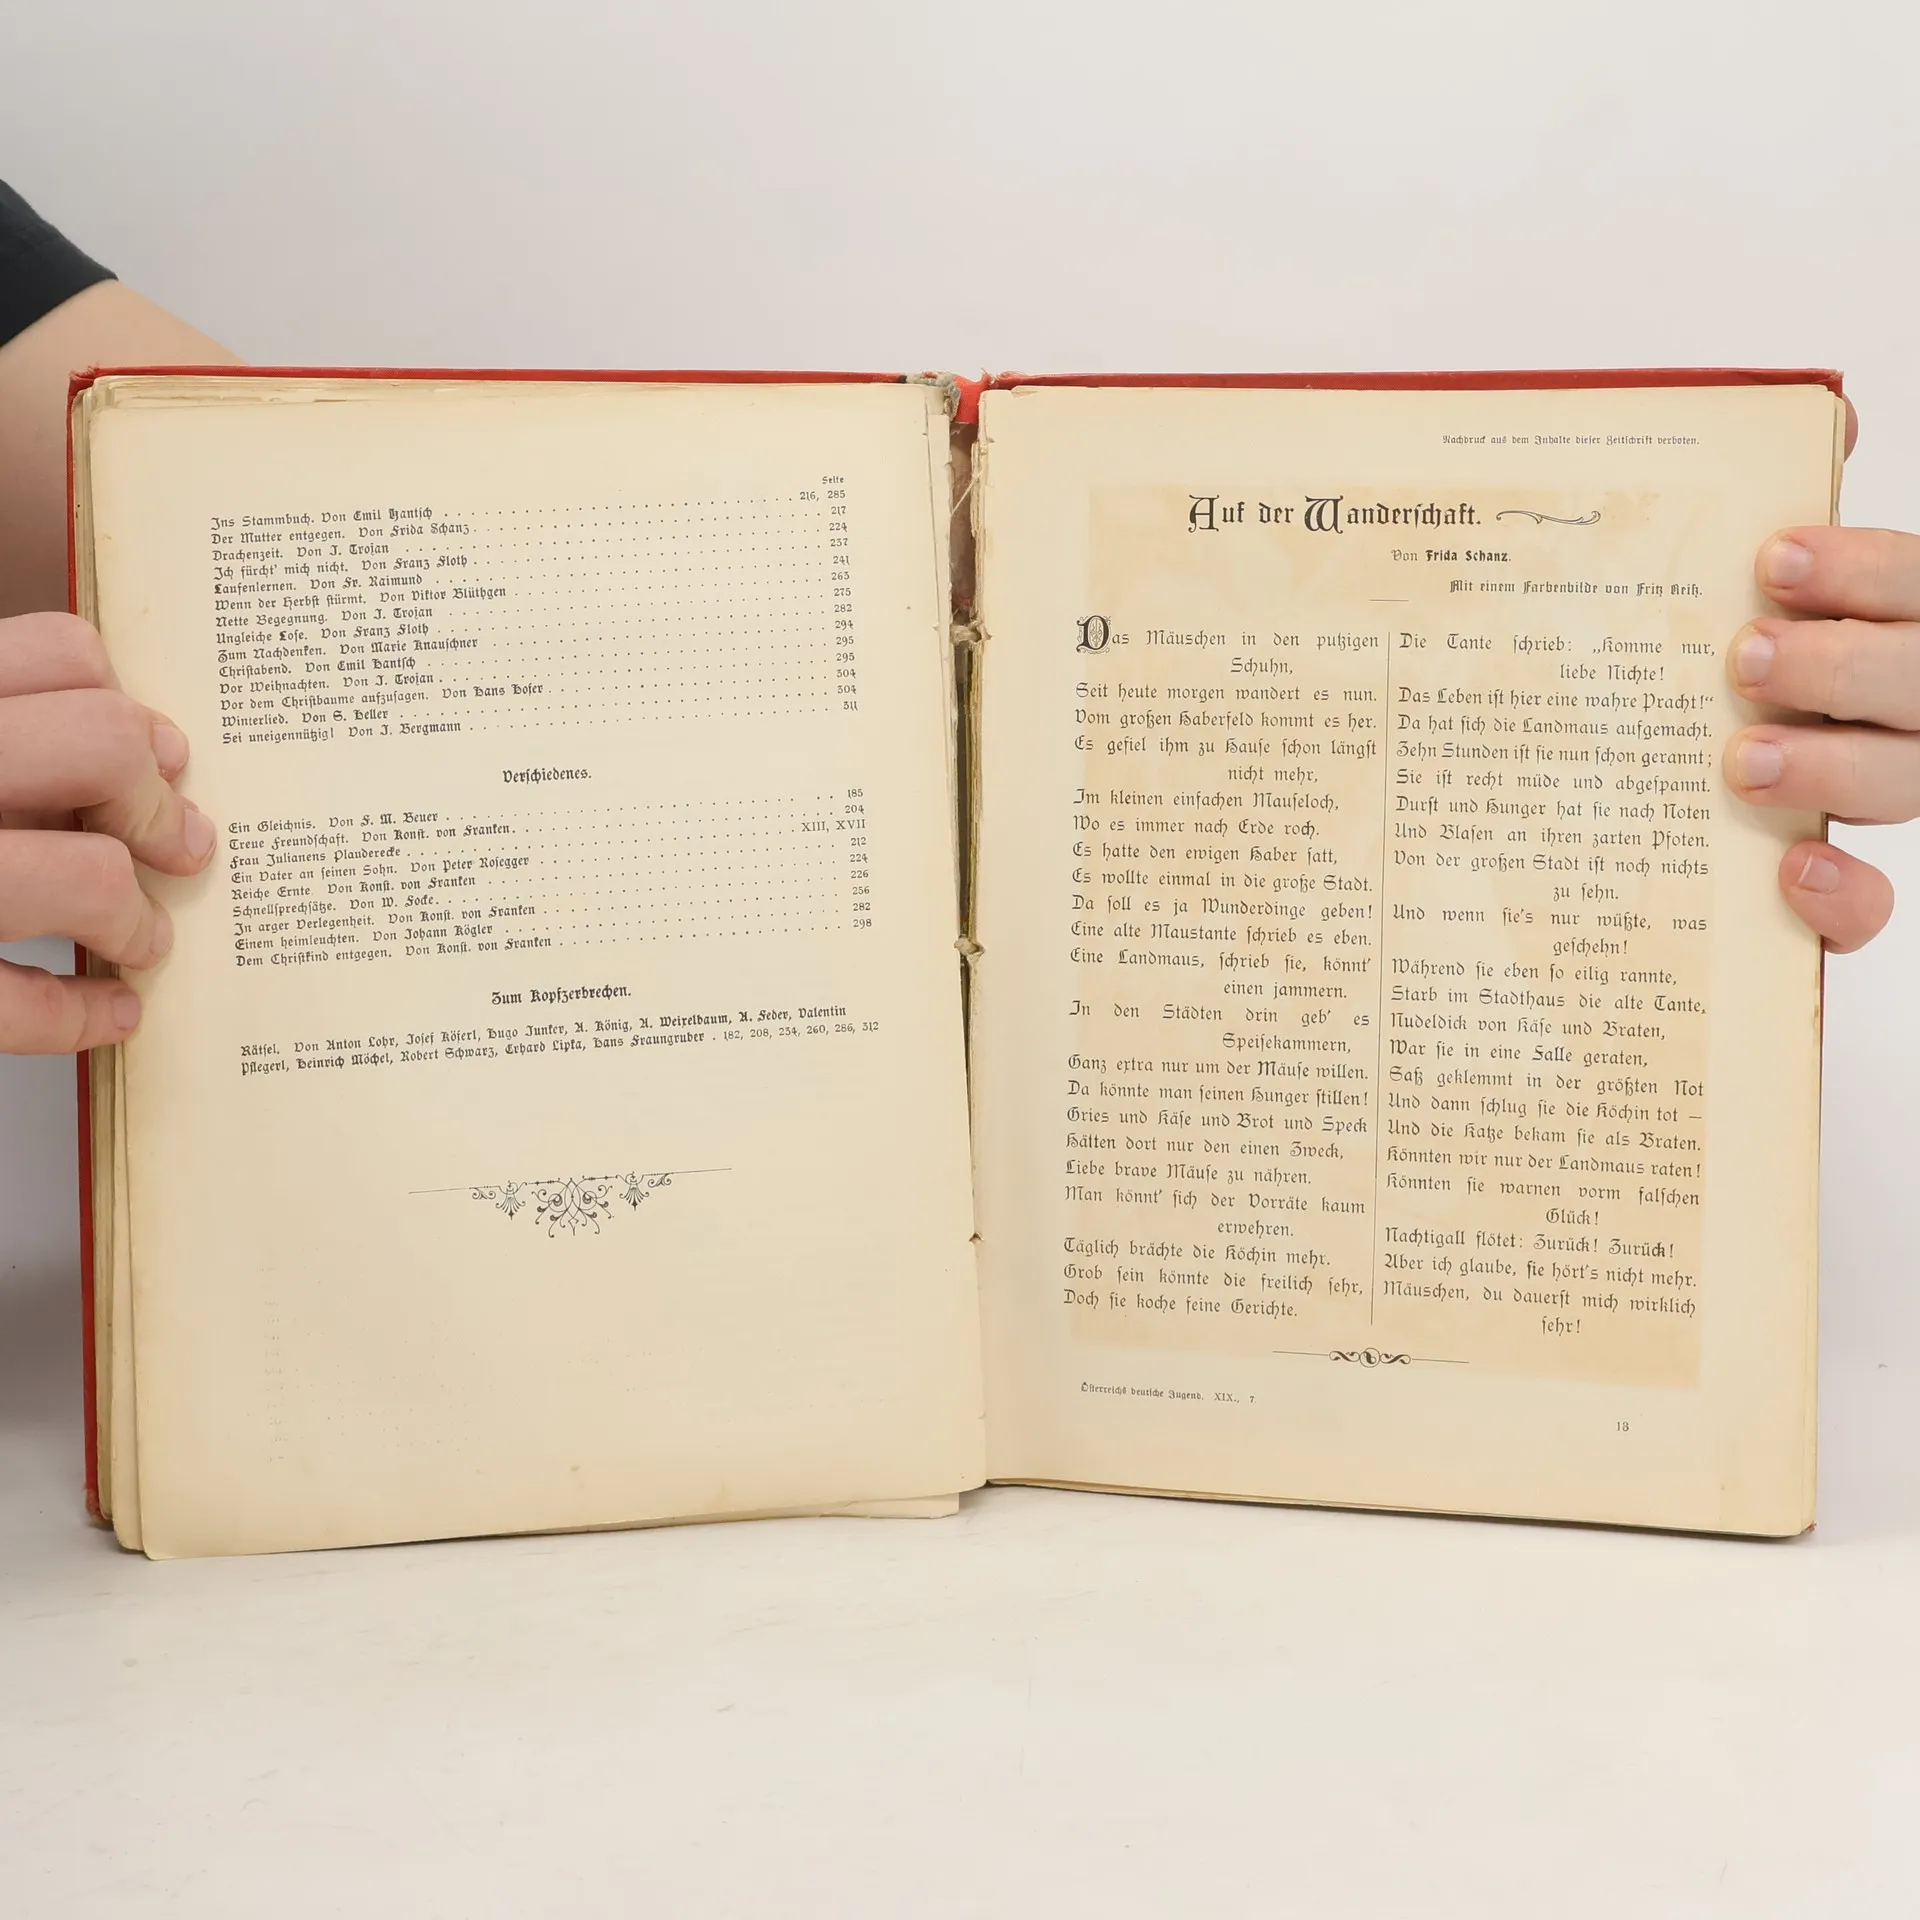 Seite
Ins Stammbuch. Von Emil Hantsch . . . 216, 285
Der Mutter entgegen. Von Frida Schanz . . . 217
Drachenzeit. Von J. Trojan . . . 224
Ich fürcht' mich nicht. Von Franz Floth . . . 237
Laufenlernen. Von Fr. Raimund . . . 241
Wenn der Herbst stürmt. Von Viktor Blüthgen . . . 263
Nette Begegnung. Von J. Trojan . . . 275
Ungleiche Lose. Von Franz Floth . . . 282
Zum Nachdenken. Von Marie Knauschner . . . 294
Christabend. Von Emil Hantsch . . . 295
Vor Weihnachten. Von J. Trojan . . . 295
Vor dem Christbaume aufzusagen. Von Hans Hofer . . . 304
Winterlied. Von S. Heller . . . 304
Sei uneigennützig! Von J. Bergmann . . . 311
Verschiedenes.
Ein Gleichnis. Von F. M. Beuer . . . 185
Treue Freundschaft. Von Konst. von Franken . . . 204
Frau Julianens Plauderecke . . . XIII, XVII
Ein Vater an seinen Sohn. Von Peter Rosegger . . . 212
Reiche Ernte Von Konst. von Franken . . . 224
Schnellsprechsätze. Von W. Focke . . . 226
In arger Verlegenheit. Von Konst. von Franken . . . 256
Einem heimleuchten. Von Johann Kögler . . . 282
Dem Christkind entgegen. Von Konst. von Franken . . . 298
Zum Kopfzerbrechen.
Rätsel. Von Anton Lohr, Josef Köferl, Hugo Junker, A. König, A. Weixelbaum, A. Feder, Valentin
Pflegerl, Heinrich Möchel, Robert Schwarz, Erhard Lipka, Hans Fraungruber . 182, 208, 234, 260, 286, 312
Nachdruck aus dem Inhalte dieser Zeitschrift verboten.
Auf der Wanderschaft.
Von Frida Schanz.
Mit einem Farbenbilde von Fritz Reiß.
Das Mäuschen in den putzigen
Schuhn,
Seit heute morgen wandert es nun.
Vom großen Haberfeld kommt es her.
Es gefiel ihm zu Hause schon längst
nicht mehr,
Im kleinen einfachen Mauseloch,
Wo es immer nach Erde roch.
Es hatte den ewigen Haber satt,
Es wollte einmal in die große Stadt.
Da soll es ja Wunderdinge geben!
Eine alte Maustante schrieb es eben.
Eine Landmaus, schrieb sie, könnt'
einen jammern.
In den Städten drin geb' es
Speisekammern,
Ganz extra nur um der Mäuse willen.
Da könnte man seinen Hunger stillen!
Gries und Käse und Brot und Speck
Hätten dort nur den einen Zweck,
Liebe brave Mäuse zu nähren.
Man könnt' sich der Vorräte kaum
erwehren.
Täglich brächte die Köchin mehr.
Grob sein könnte die freilich sehr,
Doch sie koche feine Gerichte.
Die Tante schrieb: „Komme nur,
liebe Nichte!
Das Leben ist hier eine wahre Pracht!“
Da hat sich die Landmaus aufgemacht.
Zehn Stunden ist sie nun schon gerannt;
Sie ist recht müde und abgespannt.
Durst und Hunger hat sie nach Noten
Und Blasen an ihren zarten Pfoten.
Von der großen Stadt ist noch nichts
zu sehn.
Und wenn sie's nur wüßte, was
geschehn!
Während sie eben so eilig rannte,
Starb im Stadthaus die alte Tante,
Nudeldick von Käse und Braten,
War sie in eine Falle geraten,
Saß geklemmt in der größten Not
Und dann schlug sie die Köchin tot —
Und die Katze bekam sie als Braten.
Könnten wir nur der Landmaus raten!
Könnten sie warnen vorm falschen
Glück!
Nachtigall flötet: Zurück! Zurück!
Aber ich glaube, sie hört's nicht mehr.
Mäuschen, du dauerst mich wirklich
sehr!
Österreichs deutsche Jugend. XIX., 7
13